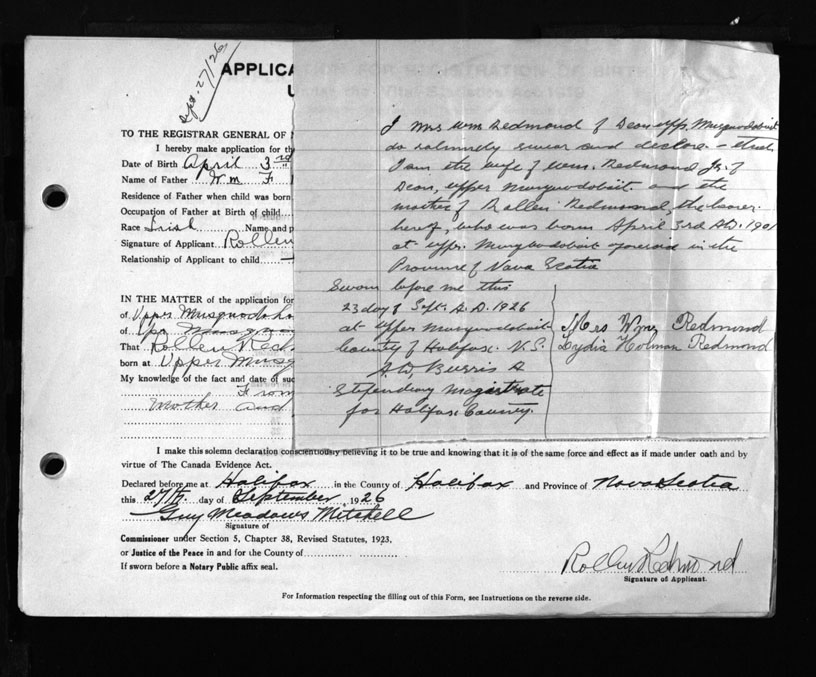 Sept. 27/26
APPLICA
U
TO THE REGISTRAR GENERAL OF
I hereby make application for th
Date of Birth April 3rd
Name of Father Wm F
Residence of Father when child was born
Occupation of Father at Birth of child
Race Irish Name and p
Signature of Applicant Rollen
Relationship of Applicant to child
IN THE MATTER of the application for
of Upper Musquodobo
of Upr Musquo
That Rollen Redm
born at Upper Musq
My knowledge of the fact and date of suc
From
Mother and
I Mrs Wm Redmond of Dean, upp. Musquodoboit
do solemnly swear and declare - that
I am the wife of Wm. Redmond Jr. of
Dean, upper Musquodoboit and the
mother of Rollen Redmond, the bearer
hereof, who was born April 3rd A.D. 1901
at upp. Musquodoboit aforesaid in the
Province of Nova Scotia
Sworn before me this
23 day of Sept. A.D. 1926
at Upper Musquodoboit
County of Halifax. N.S.
A.D. Burris
Stipendiary Magistrate
for Halifax County.
Mrs Wm Redmond
Lydia Holman Redmond
I make this solemn declaration conscientiously believing it to be true and knowing that it is of the same force and effect as if made under oath and by
virtue of The Canada Evidence Act.
Declared before me at Halifax in the County of Halifax and Province of Nova Scotia
this 27th. day of September, 1926
Guy Meadows Mitchell
Signature of
Commissioner under Section 5, Chapter 38, Revised Statutes, 1923,
or Justice of the Peace in and for the County of
If sworn before a Notary Public affix seal.
Rollen Redmond
Signature of Applicant.
For Information respecting the filling out of this Form, see Instructions on the reverse side.